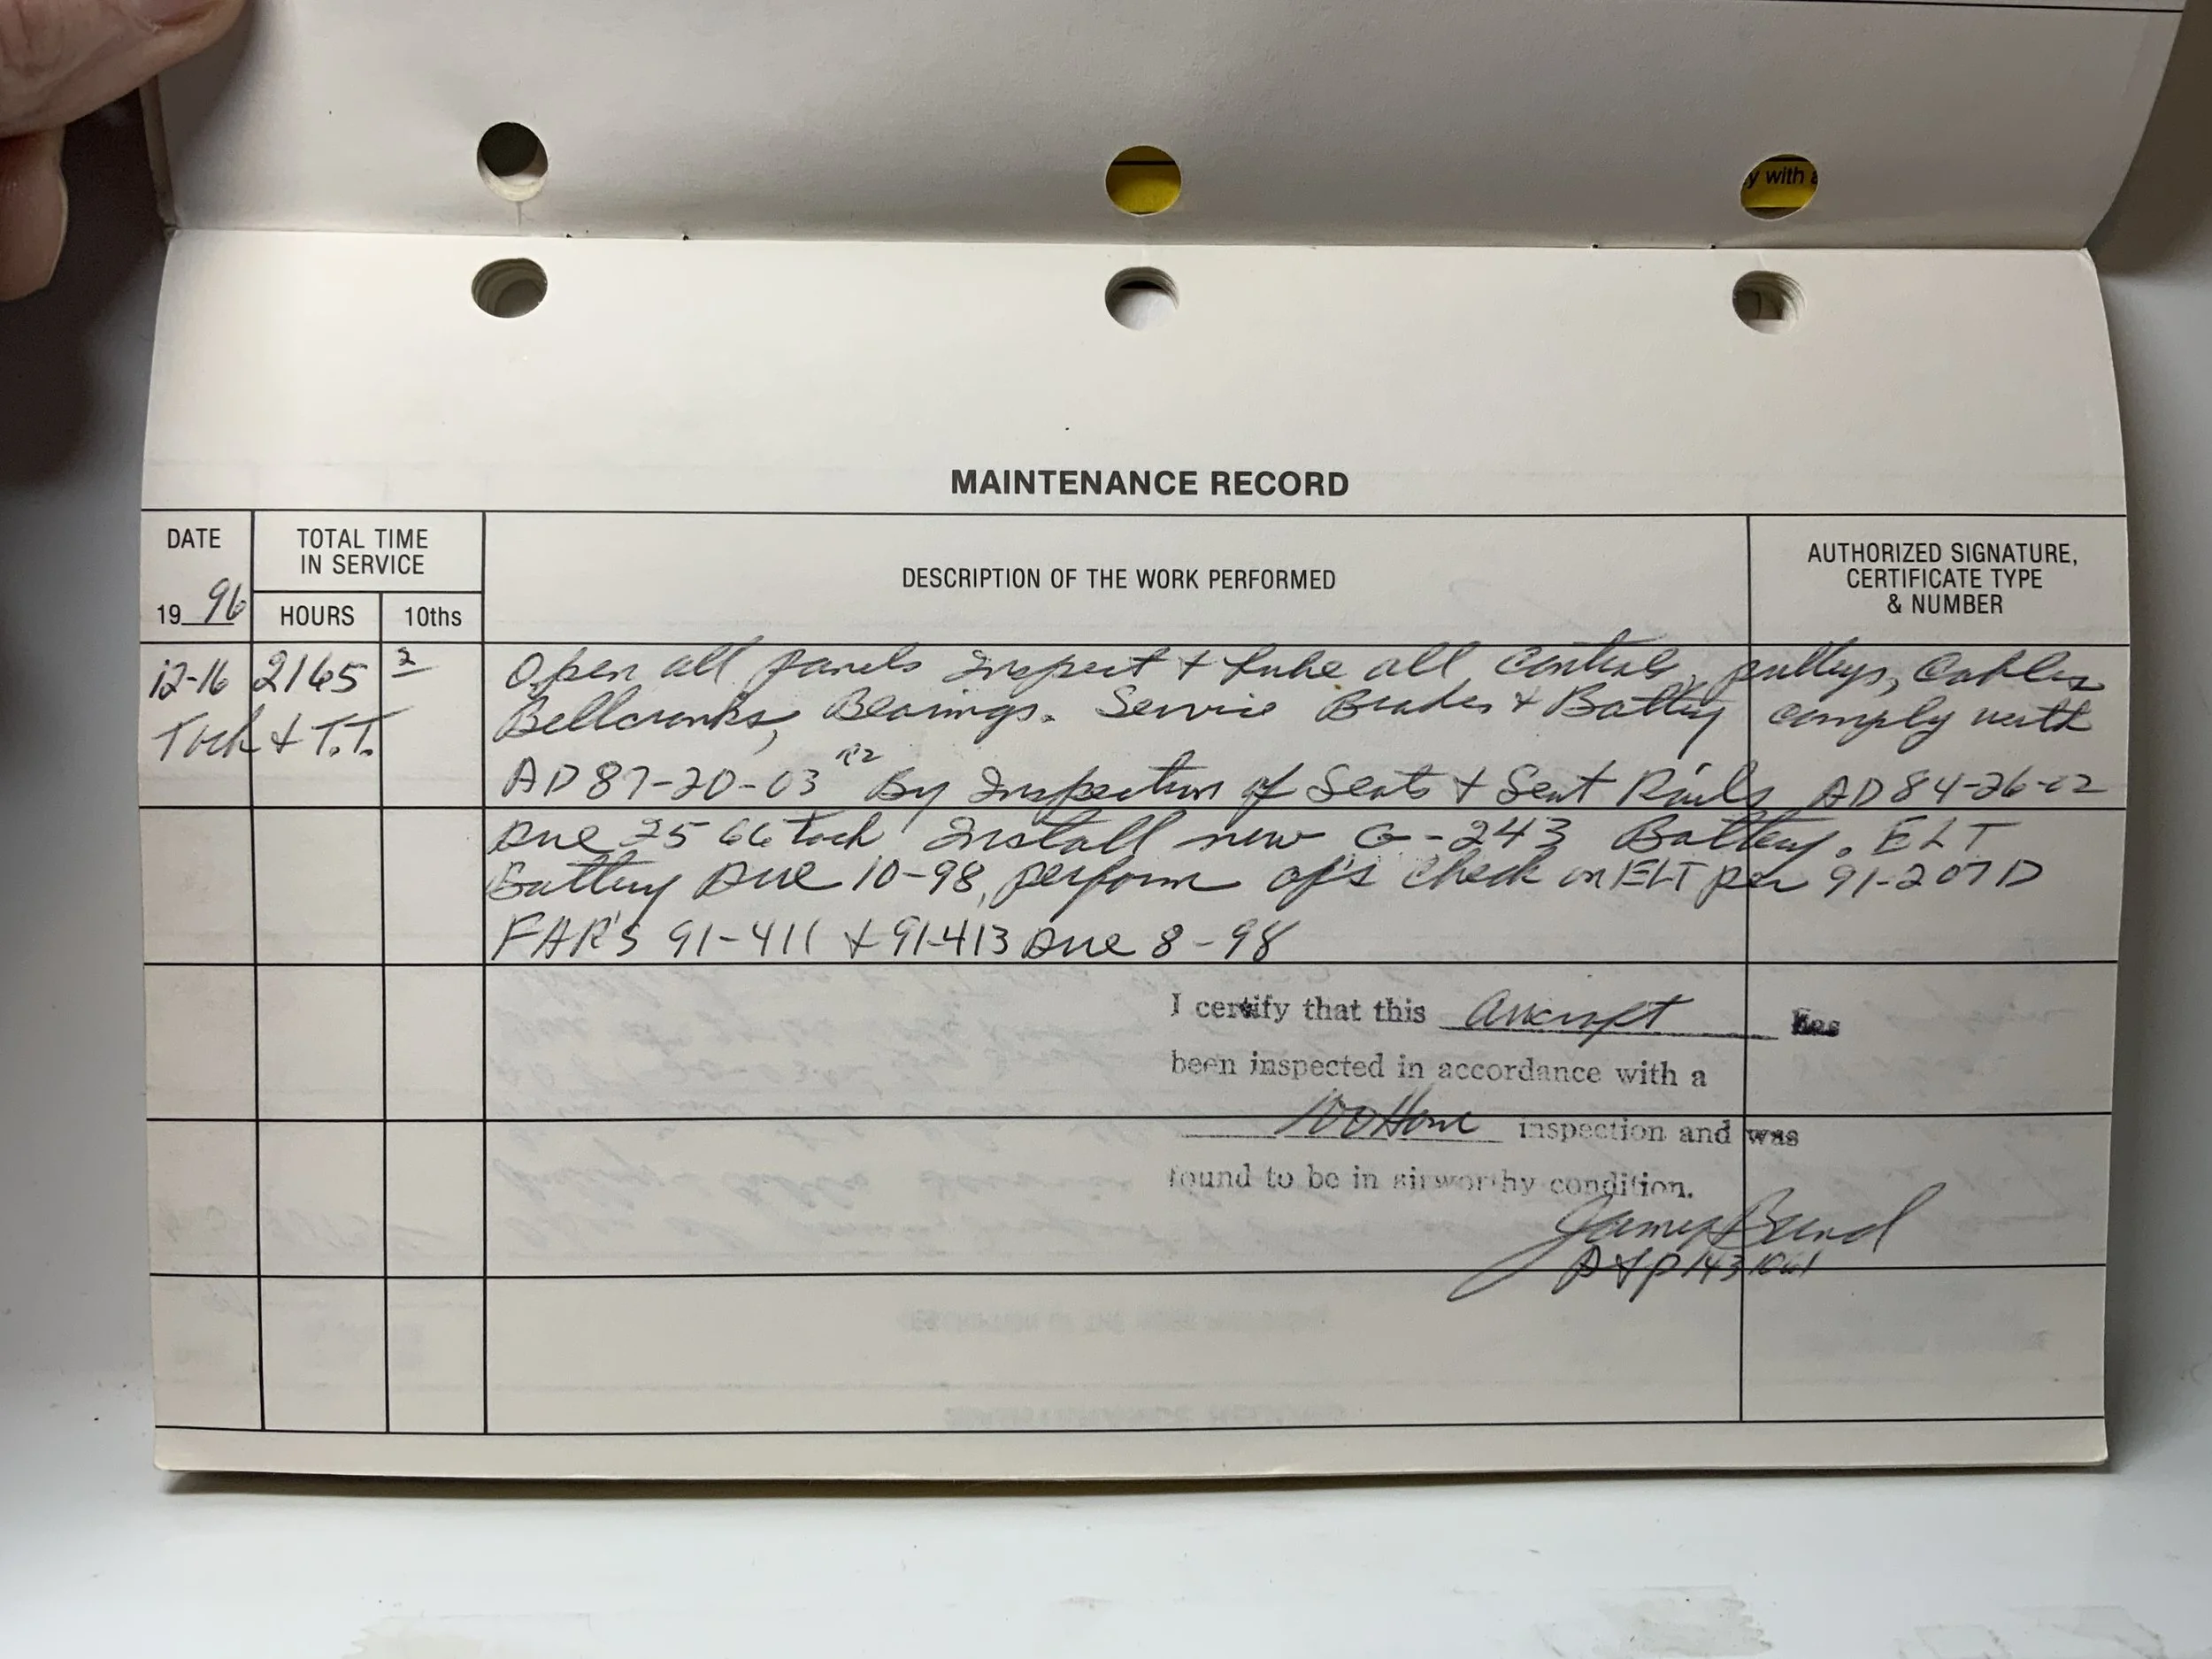 y with a
MAINTENANCE RECORD
DATE
19 96
TOTAL TIME
IN SERVICE
HOURS
10ths
DESCRIPTION OF THE WORK PERFORMED
AUTHORIZED SIGNATURE,
CERTIFICATE TYPE
& NUMBER
12-16 2165 2 Open all panels Inspect + Lube all Controls, pulleys, Cables
Tach + T.T. Bellcranks, Bearings. Service Brakes + Battery comply with
AD 87-20-03 R2 By Inspection of Seats + Seat Rails AD 84-26-02
Due 2566 Tach Install new G-243 Battery. ELT
Battery Due 10-98, perform op's check on ELT per 91-207D
FAR'S 91-411 + 91-413 Due 8-98
I certify that this Aircraft has
been inspected in accordance with a
100 Hour inspection and was
found to be in airworthy condition.
James
A&P 1431061